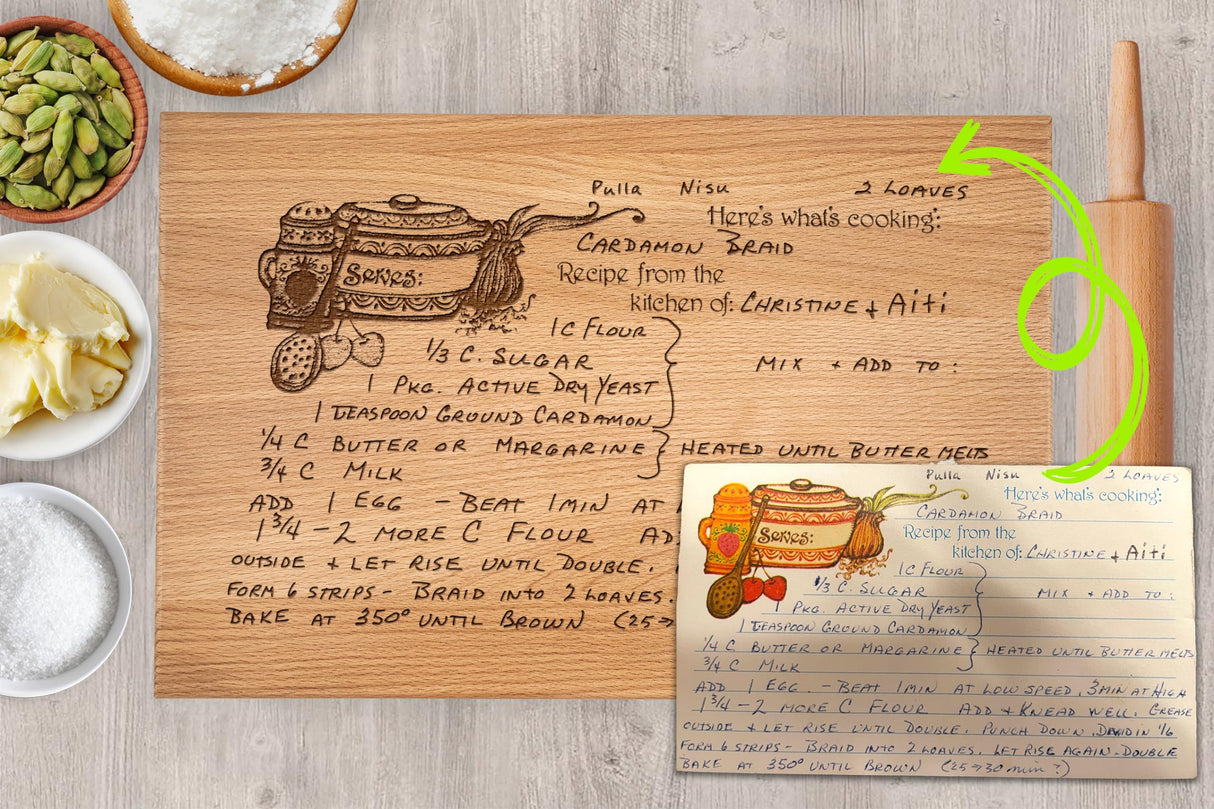 Pulla Nisu 2 LOAVES
Here's what's cooking:
CARDAMON BRAID
Recipe from the
kitchen of: CHRISTINE + Aiti
Serves:
1 C FLOUR
1/3 C. SUGAR
MIX + ADD TO:
1 PKG. ACTIVE DRY YEAST
1 TEASPOON GROUND CARDAMON
1/4 C BUTTER OR MARGARINE HEATED UNTIL BUTTER MELTS
3/4 C MILK
ADD 1 EGG - BEAT 1 MIN AT
1 3/4 - 2 MORE C FLOUR AD
OUTSIDE + LET RISE UNTIL DOUBLE.
FORM 6 STRIPS - BRAID INTO 2 LOAVES.
BAKE AT 350° UNTIL BROWN (25→
Pulla Nisu 2 LOAVES
Here's what's cooking:
CARDAMON BRAID
Recipe from the
kitchen of: CHRISTINE + Aiti
Serves:
1 C FLOUR
1/3 C. SUGAR
MIX + ADD TO:
1 PKG. ACTIVE DRY YEAST
1 TEASPOON GROUND CARDAMON
1/4 C BUTTER OR MARGARINE HEATED UNTIL BUTTER MELTS
3/4 C MILK
ADD 1 EGG. - BEAT 1 MIN AT LOW SPEED, 3 MIN AT HIGH
1 3/4 - 2 MORE C FLOUR ADD + KNEAD WELL. GREASE
OUTSIDE + LET RISE UNTIL DOUBLE. PUNCH DOWN. IN 1/6
FORM 6 STRIPS - BRAID INTO 2 LOAVES. LET RISE AGAIN - DOUBLE
BAKE AT 350° UNTIL BROWN (25→30 min?)